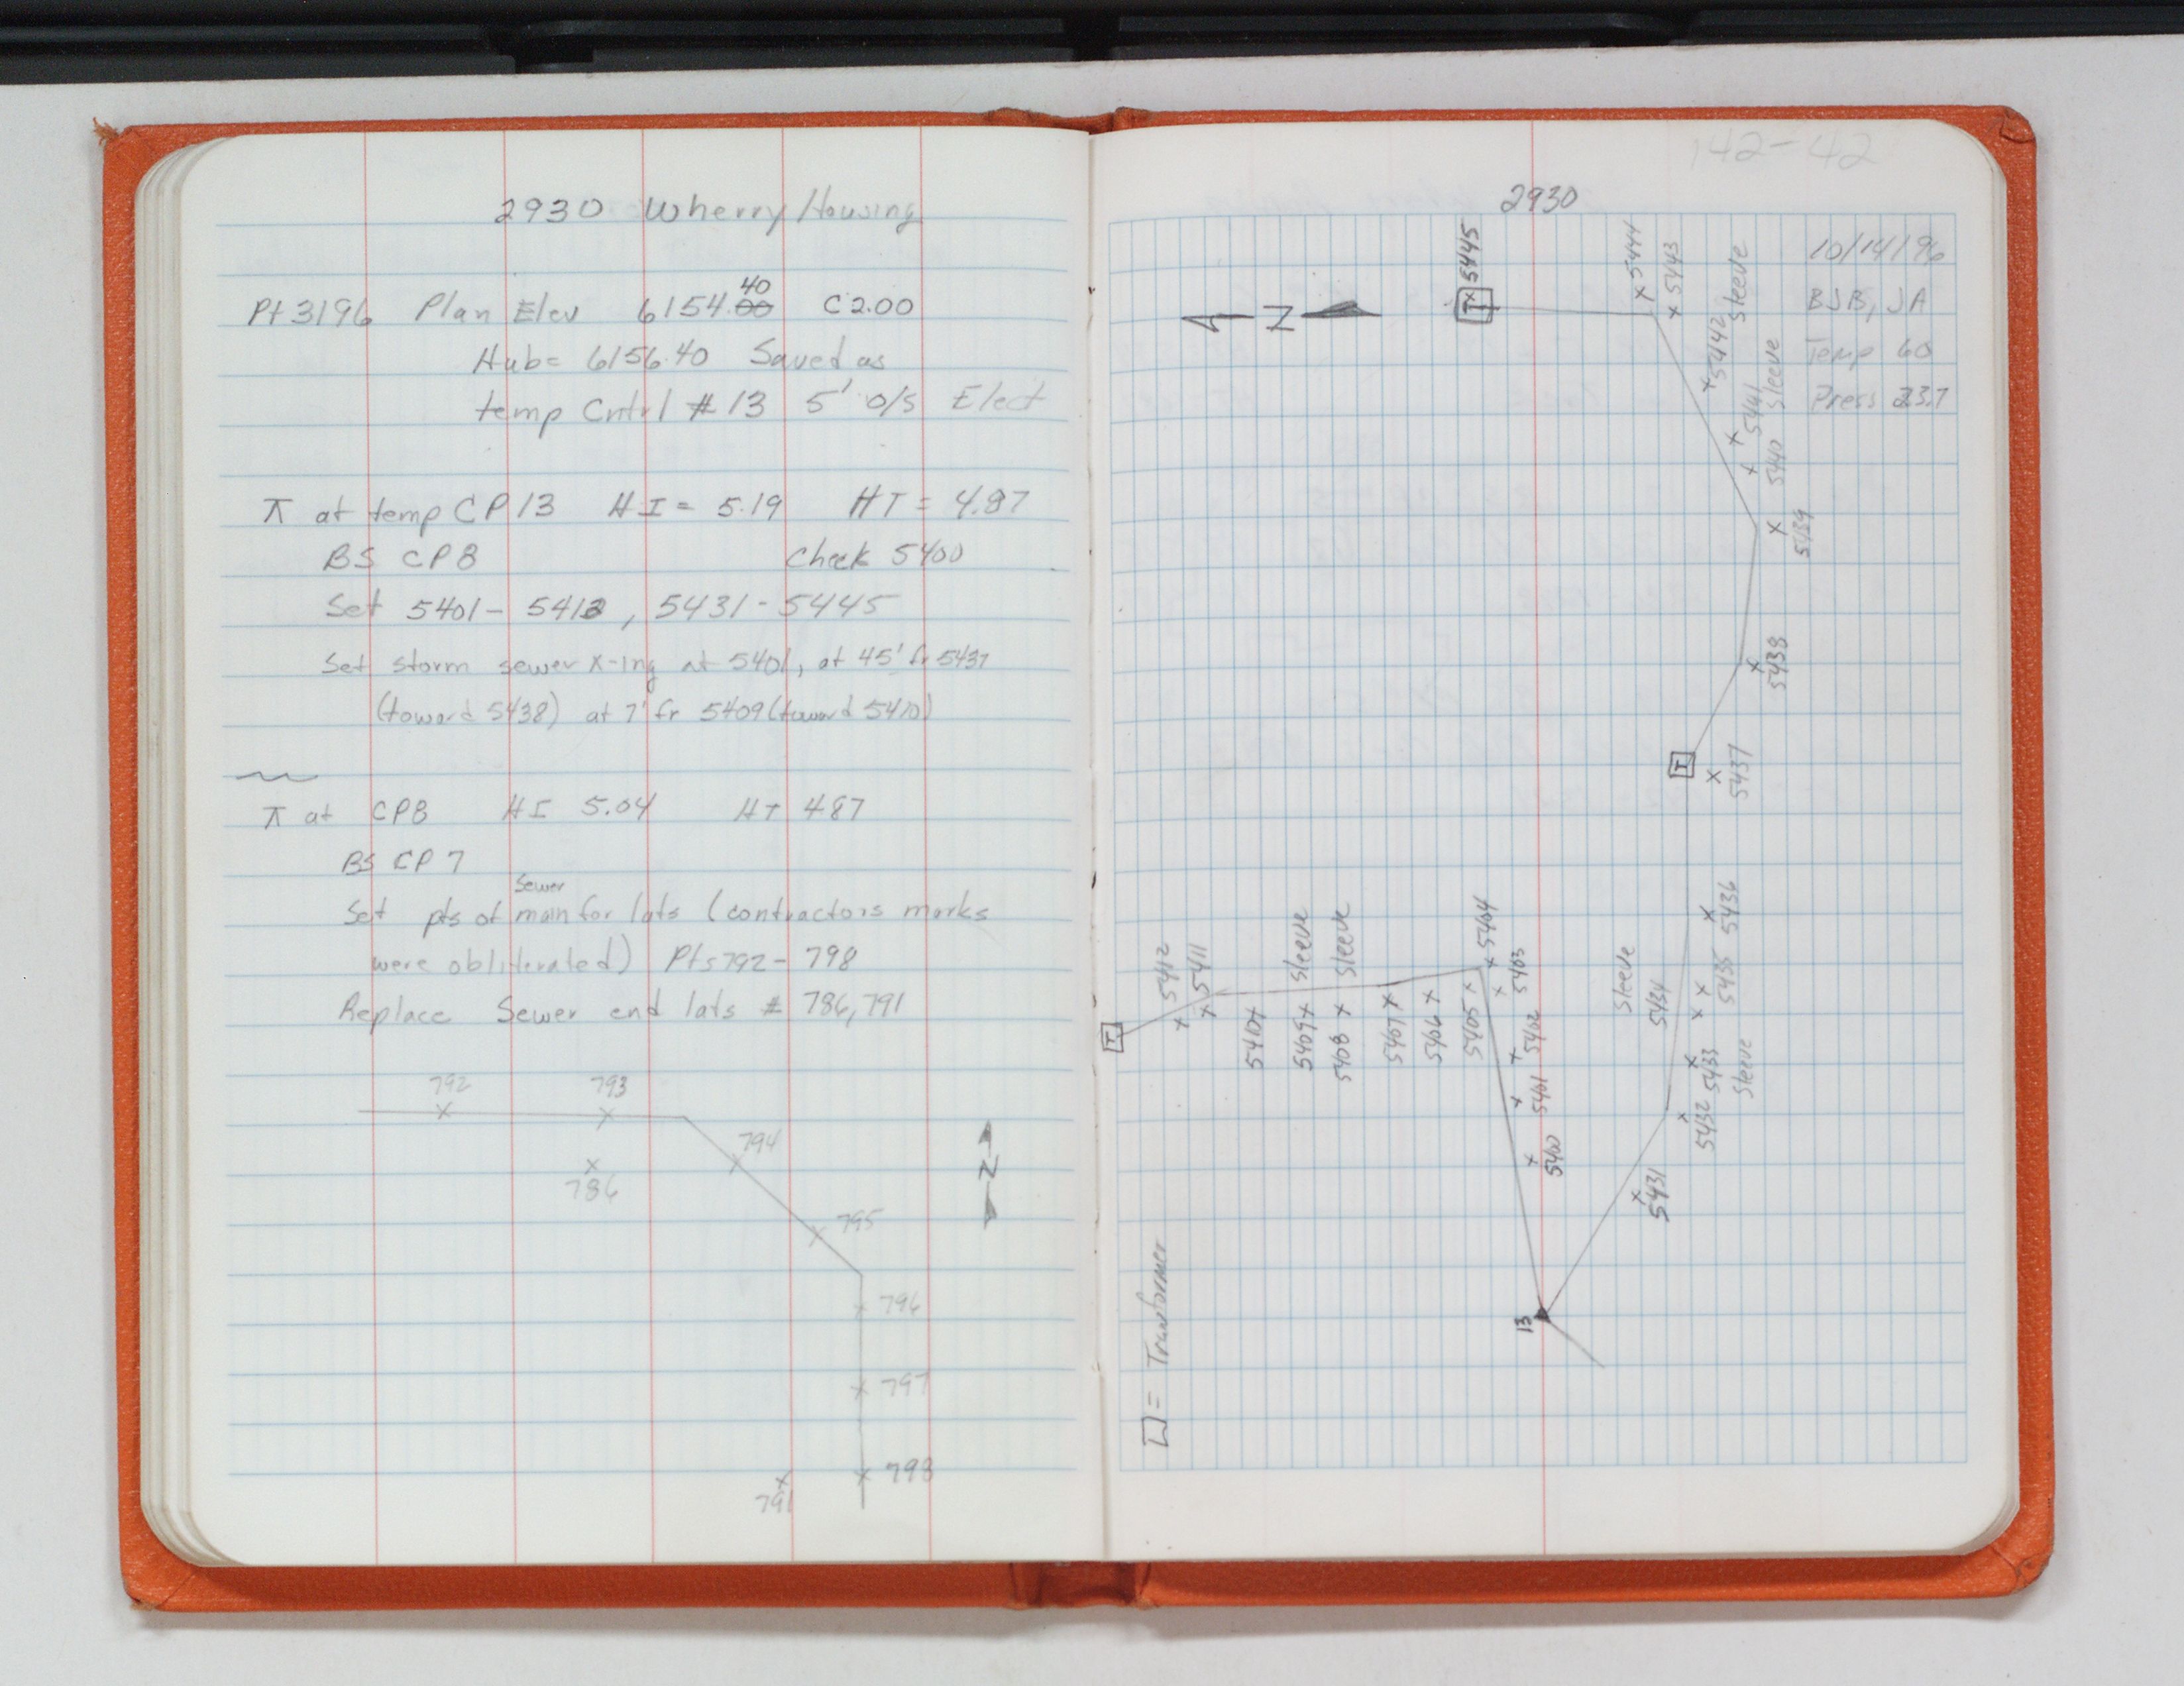 2930 Wherry Housing
Pt 3196 Plan Elev 6154.00 40 C2.00
Hub= 6156.40 Saved as
temp Cntrl # 13 5' o/s Elect
π at temp CP13 HI = 5.19 HT = 4.87
BS CP8 Check 5400
Set 5401 - 5412, 5431 - 5445
Set storm sewer x-ing at 5401, at 45' fr 5437
(toward 5438) at 7' fr 5409 (toward 5410)
π at CP8 HI 5.04 HT 4.87
BS CP7
Sewer
Set pts of main for lats (contractors marks
were obliterated) Pts 792 - 798
Replace Sewer end lats # 786, 791
792 793
794
786
N
795
796
797
798
791
142-42
2930
10/14/96
BJB, JA
Temp 60
Press 23.7
N
T
5445
5444
5443
Sleeve
5442
Sleeve
5441
5440
5439
5438
T
5437
5436
5435
Sleeve
5434
5433
Sleeve
5432
5431
5404
5403
5402
5401
5400
5405
5406
5407
Sleeve
5408
Sleeve
5409
5410
5411
5412
T
13
= Transformer